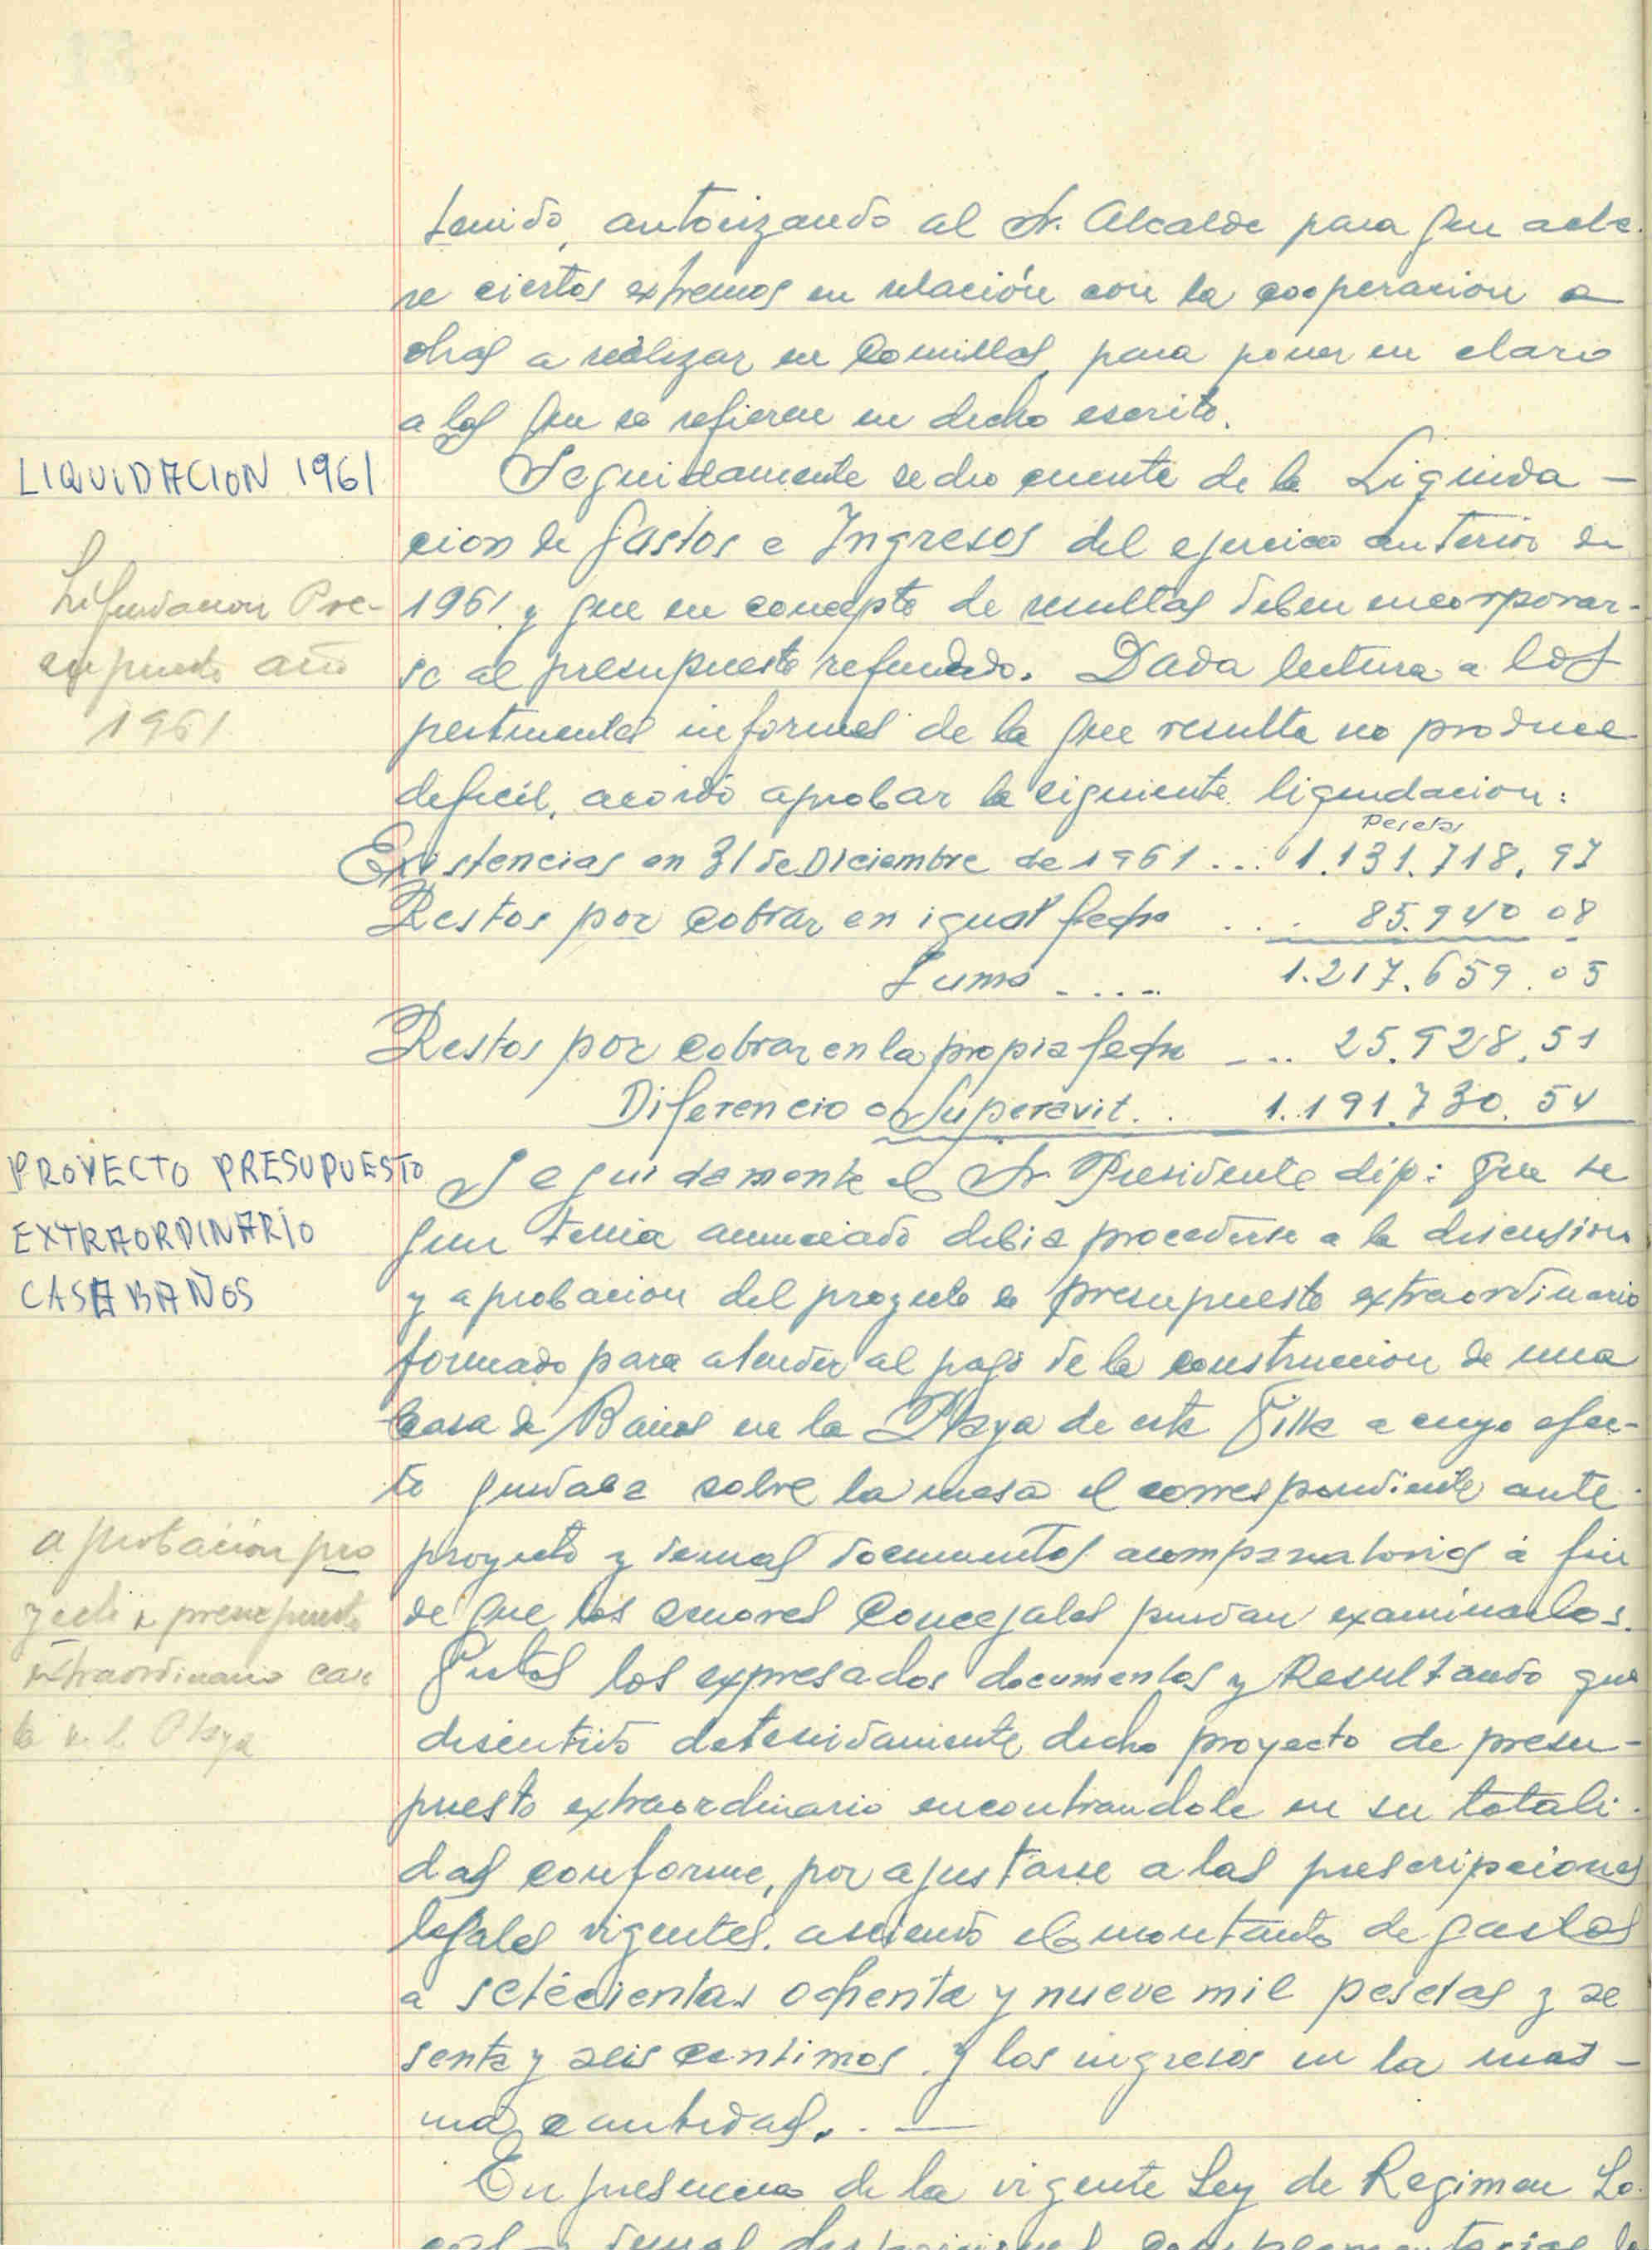 tenido, autorizando al Sr. Alcalde para que acla-
re ciertos extremos en relación con la cooperacion a
obras a realizar en Comillas, para poner en claro
a los que se refieren en dicho escrito.
LIQUIDACION 1961
Seguidamente se dio cuenta de la Liquida-
cion de Gastos e Ingresos del ejercicio anterior de
Liquidacion Pre-
supuesto año
1961
1961 y que en concepto de resultas deben incorporar-
se al presupuesto refundido. Dada lectura a los
pertinentes informes de la que resulta no produce
deficit, acordó aprobar la siguiente liquidacion:
Pesetas
Existencias en 31 de Diciembre de 1961 ... 1.131.718,97
Restos por cobrar en igual fecha ... 85.940 08
Suma ..... 1.217.659.05
Restos por cobrar en la propia fecha ... 25.928.51
Diferencia o Superavit.. 1.191.730.54
PROYECTO PRESUPUESTO
EXTRAORDINARIO
CASA BAÑOS
Seguidamente el Sr. Presidente dijo: Que se
gun tenia anunciado debia procederse a la discusion
y aprobacion del proyecto de presupuesto extraordinario
formado para atender al pago de la construccion de una
Casa de Baños en la Playa de esta Villa a cuyo efec-
to quedaba sobre la mesa el correspondiente ante
aprobación pro
yecto de presupuesto
extraordinario case
ta de la Playa
proyecto y demas documentos acompanatorios a fin
de que los senores Concejales puedan examinarlos.
Vistos los expresados documentos y Resultando que
discutido detenidamente dicho proyecto de presu-
puesto extraordinario encontrandole en su totali-
dad conforme, por ajustarse a las prescripciones
legales vigentes. asciendo el montante de gastos
a setecientas ochenta y nueve mil pesetas y se
senta y seis centimos y los ingresos en la mis-
ma cantidad. . —
En presencia de la vigente Ley de Regimen Lo-
cal y demas disposiciones complementarias